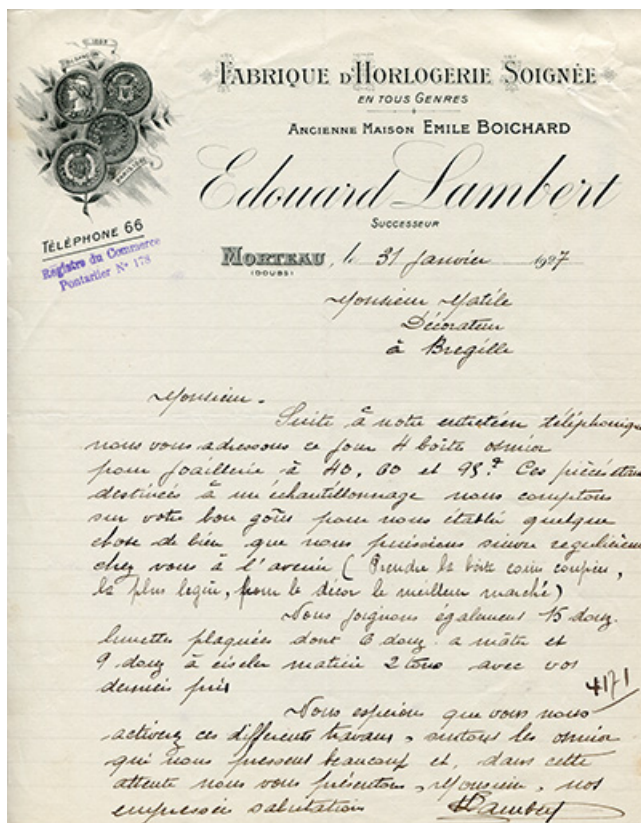 FABRIQUE D'HORLOGERIE SOIGNÉE
EN TOUS GENRES
ANCIENNE MAISON EMILE BOICHARD
Edouard Lambert
SUCCESSEUR
TÉLÉPHONE 66
Registre du Commerce
Pontarlier N° 178
MORTEAU, le 31 Janvier 1927
(DOUBS)
Monsieur Matile
Décorateur
à Bregille
Monsieur.
Suite à notre entretien téléphonique
nous vous adressons ce jour 4 boîte osmior
pour joaillerie à 40, 60 et 95f. Ces pièces étant
destinées à un échantillonnage nous comptons
sur votre bon goût pour nous établir quelque
chose de bien que nous puissions suivre regulièrement
chez vous à l'avenir (Prendre la boîte coins coupées,
la plus legère, pour le décor le meilleur marché)
Nous joignons également 15 douz.
lunettes plaquées dont 6 douz. a mâter et
9 douz à ciseler matière 2 tons avec vos
derniers prix
4171
Nous espérons que vous nous
activerez ces différents travaux, surtout les osmior
qui nous pressent beaucoup et, dans cette
attente nous vous présentons, Monsieur, nos
empressées salutations
Lambert